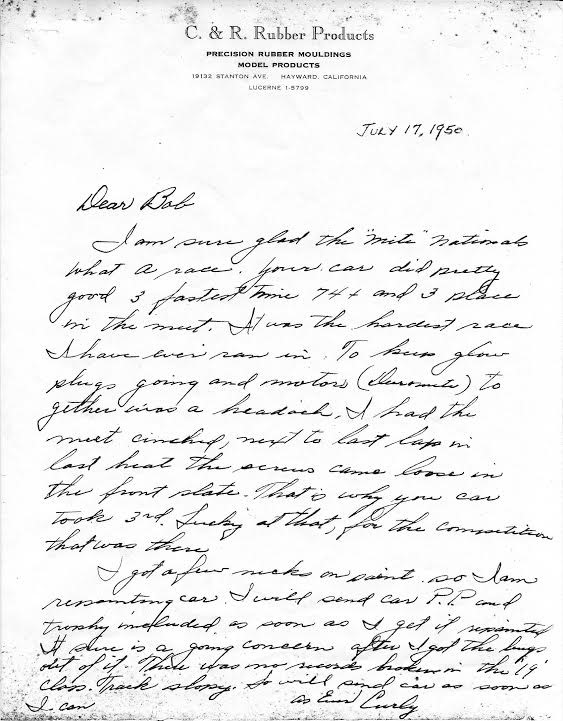 C. & R. Rubber Products
PRECISION RUBBER MOULDINGS
MODEL PRODUCTS
19132 STANTON AVE. HAYWARD, CALIFORNIA
LUCERNE 1-5799
JULY 17, 1950.
Dear Bob
I am sure glad the "Mite" Nationals
what a race. your car did pretty
good 3 fastest time 74+ and 3 place
in the meet. It was the hardest race
I have ever ran in. To keep glow
plugs going and motors (Duromite) to
gether was a headach. I had the
meet cinched, next to last lap in
last heat the screws came loose in
the front plate. That's why you car
took 3rd. Lucky at that, for the competition
that was there
I got a few nicks on paint. so I am
repainting car. I will send car P.P. and
trophy included as soon as I get it repainted
It sure is a going concern after I got the bugs
out of it. There was no records broken in the "19"
class. Track slopy. So will send car as soon as
I can
as Ever Curly